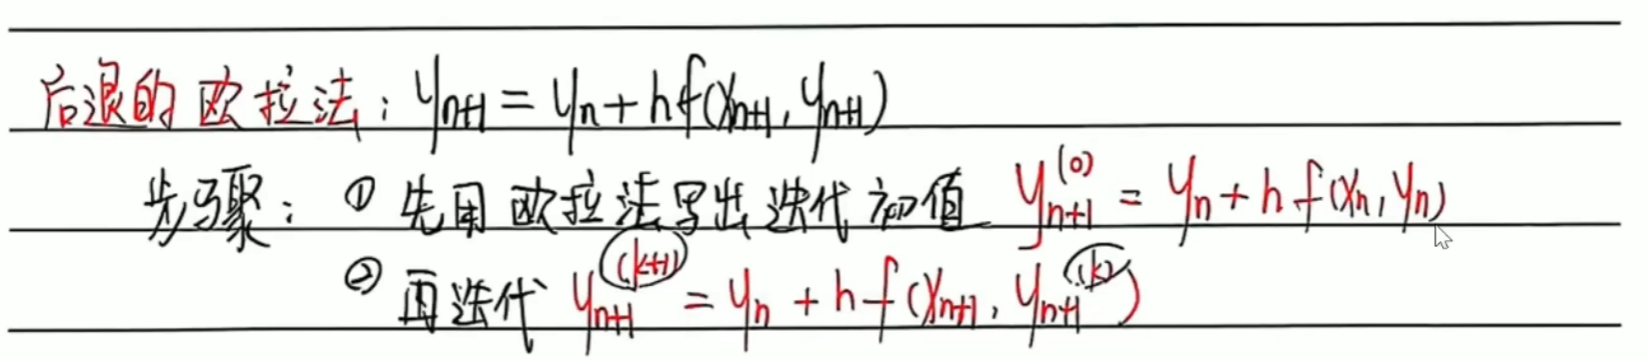 后退的欧拉法：y_{n+1} = y_n + hf(x_{n+1}, y_{n+1})
步骤：① 先用欧拉法写出迭代初值 y_{n+1}^{(0)} = y_n + hf(x_n, y_n)
② 再迭代 y_{n+1}^{(k+1)} = y_n + hf(x_{n+1}, y_{n+1}^{(k)})